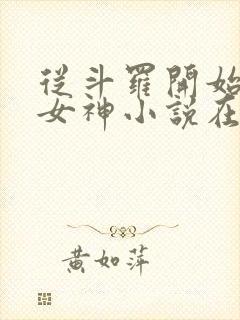 從斗羅開始
女神小說在
黃如萍